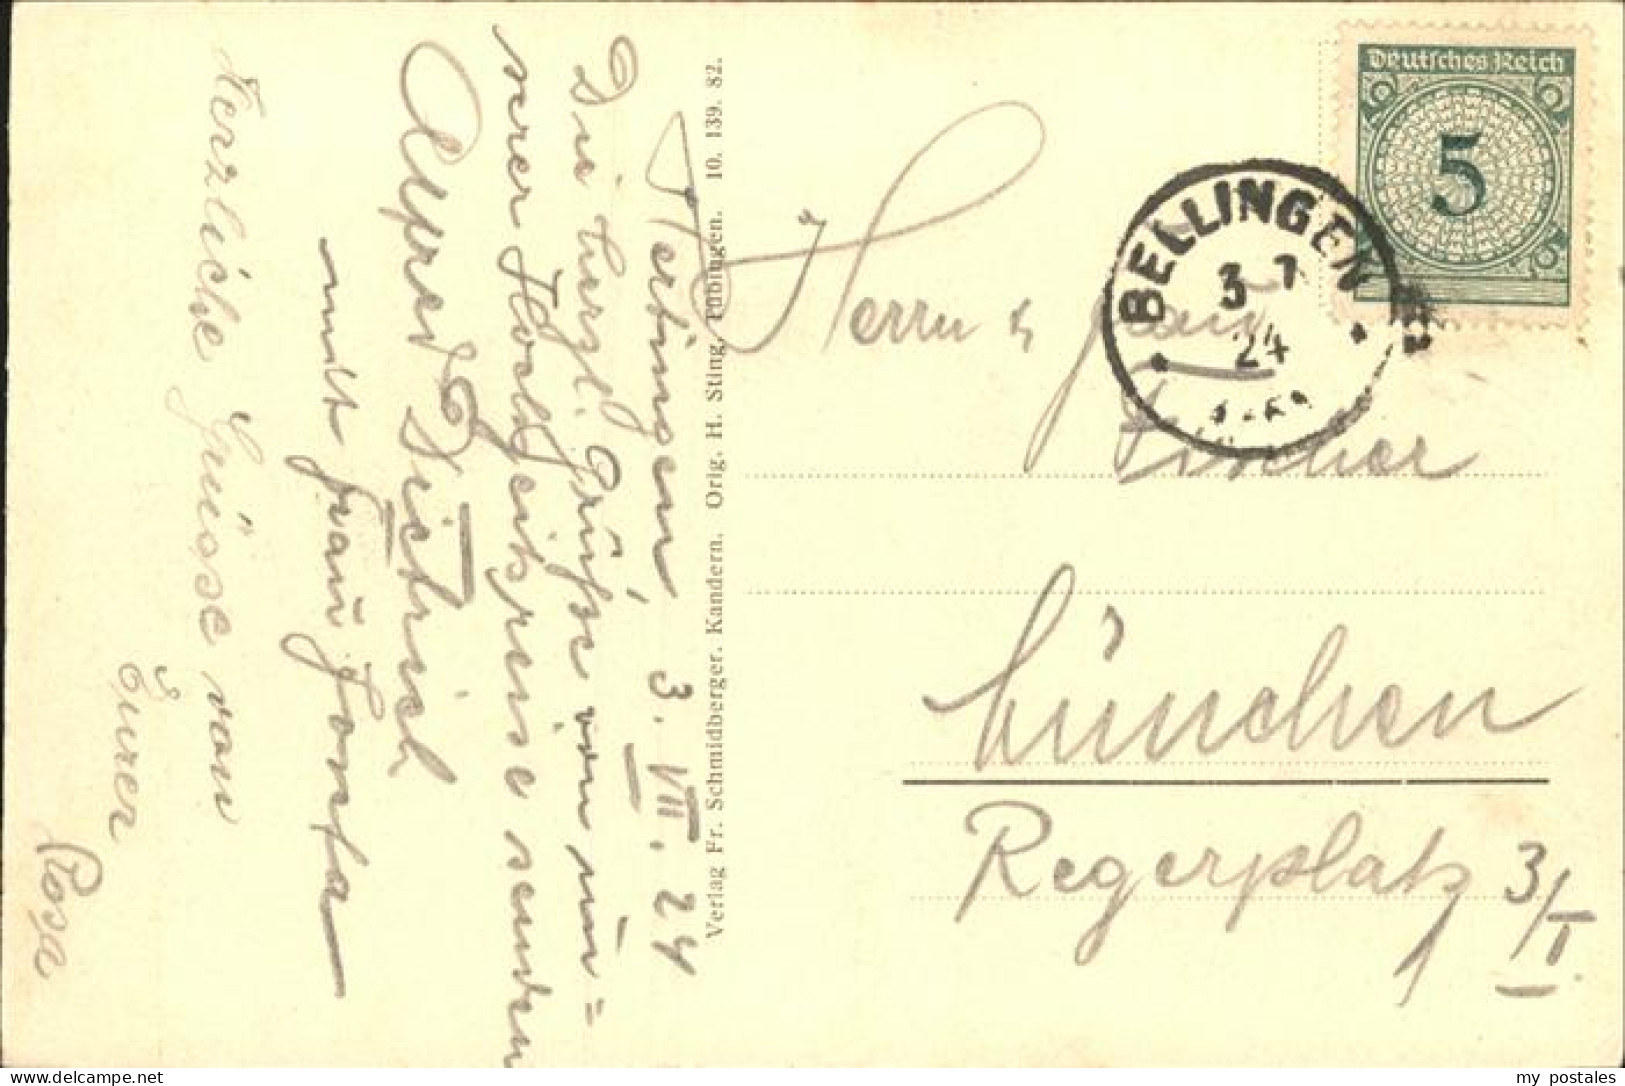 Hertingen, 3. VII. 24
Die herzl. Grüße von un=
serer Hochzeitsreise senden
Alfred Dietrich
mit Frau
Herzliche Grüsse von
Eurer
Rosa
Verlag Fr. Schmidberger. Kandern. Orig. H. Sting, Tübingen. 10. 139. 82.
Deutsches Reich
5
BELLINGEN
3 7
24
Herrn &
Fischer
München
Regerplatz 3/I
my postales